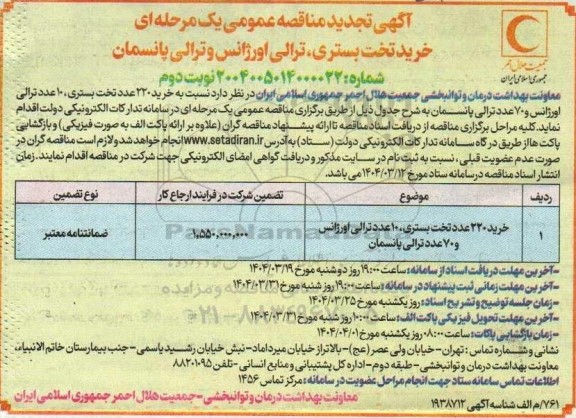 آگهی تجدید مناقصه عمومی یک مرحله ای
خرید تخت بستری، ترالی اورژانس و ترالی پانسمان
شماره: ۲۰۰۴۰۰۵۰۱۴۰۰۰۰۲۲ نوبت دوم
جمعیت هلال احمر
جمهوری اسلامی ایران
معاونت بهداشت درمان و توانبخشی جمعیت هلال احمر جمهوری اسلامی ایران در نظر دارد نسبت به خرید ۲۲۰ عدد تخت بستری، ۱۰ عدد ترالی
اورژانس و ۷۰ عدد ترالی پانسمان به شرح جدول ذیل از طریق برگزاری مناقصه عمومی یک مرحله ای در سامانه تدارکات الکترونیکی دولت اقدام
نماید. کلیه مراحل برگزاری مناقصه از دریافت اسناد مناقصه تا ارائه پیشنهاد مناقصه گران (علاوه بر ارائه پاکت الف به صورت فیزیکی) و بازگشایی
پاکت ها از طریق درگاه سامانه تدارکات الکترونیکی دولت (ستاد) به آدرس www.setadiran.ir انجام خواهد شد و لازم است مناقصه گران در
صورت عدم عضویت قبلی، نسبت به ثبت نام در سایت مذکور و دریافت گواهی امضای الکترونیکی جهت شرکت در مناقصه اقدام نمایند. زمان
انتشار اسناد مناقصه در سامانه ستاد مورخ ۱۴۰۴/۰۳/۱۲ می باشد.
ردیف موضوع تضمین شرکت در فرایند ارجاع کار نوع تضمین
۱ خرید ۲۲۰ عدد تخت بستری، ۱۰ عدد ترالی اورژانس و ۷۰ عدد ترالی پانسمان ۱,۵۵۰,۰۰۰,۰۰۰ ضمانتنامه معتبر
-آخرین مهلت دریافت اسناد از سامانه: ساعت ۱۹:۰۰ روز دوشنبه مورخ ۱۴۰۴/۰۳/۱۹
-آخرین مهلت زمانی ثبت پیشنهاد در سامانه: ساعت ۱۹:۰۰ روز شنبه مورخ ۱۴۰۴/۰۳/۳۱
-زمان جلسه توضیح و تشریح اسناد: روز یکشنبه مورخ ۱۴۰۴/۰۳/۲۵
-آخرین مهلت تحویل فیزیکی پاکت الف: ساعت ۱۰:۰۰ روز شنبه مورخ ۱۴۰۴/۰۳/۳۱
-زمان بازگشایی پاکات: ساعت ۰۸:۰۰ روز یکشنبه مورخ ۱۴۰۴/۰۴/۰۱
نشانی و شماره تماس: تهران- خیابان ولی عصر (عج)- بالاتر از خیابان میرداماد- نبش خیابان رشید یاسمی- جنب بیمارستان خاتم الانبیاء-
معاونت بهداشت درمان و توانبخشی- طبقه دوم- اداره کل پشتیبانی و منابع انسانی - تلفن: ۸۸۲۰۱۰۹۵
اطلاعات تماس سامانه ستاد جهت انجام مراحل عضویت در سامانه: مرکز تماس ۱۴۵۶
معاونت بهداشت درمان و توانبخشی- جمعیت هلال احمر جمهوری اسلامی ایران
۷۶۱/م الف شناسه آگهی ۱۹۳۸۷۱۲